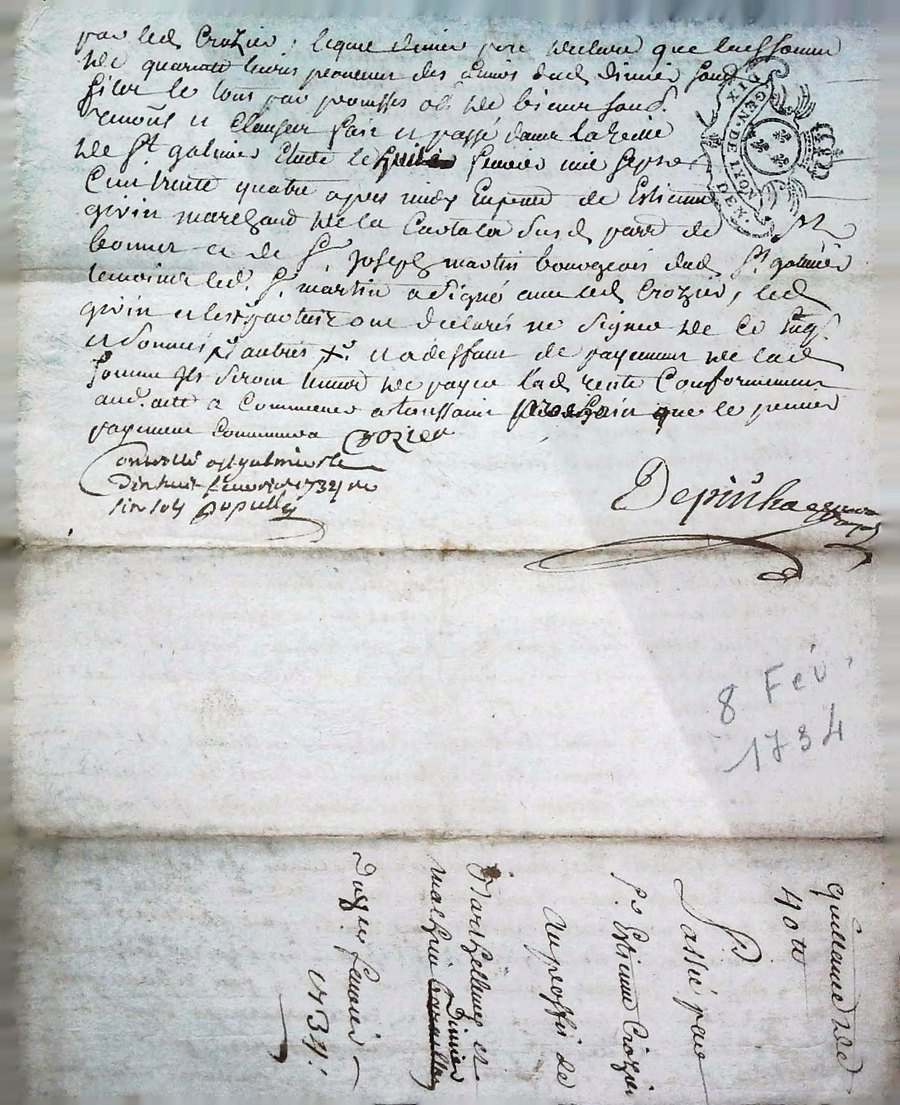 par led Crozier, lequel dimier pere declare que lad somme
de quarante livres provenir des deniers dud dimier
le tout par promesses obl de biens soub.
renon et clauses fait et passé dans la
de St galmier Etude le huit fevrier mil sept
Cent trente quatre apres midy En presence de Estienne
givin marchand de la parr de St
bonnet et de Sr Joseph martin bourgeois dud St galmier
temoins led Sr martin a signé avec led Crozier, led
givin et les ont declarés ne signer de ce Enqs.
et sommés et a deffaut de payement de lad
somme Ils seront tenus de payer lad rente Conformement
aud. acte a Commencer a toussaint prochain que le premier
payement Commencera Crozier
Controllé a St galmier le
dix huit fevrier 1734 re
six sols
Depinhac
GEN. DE LION
DIX DEN.
8 Fév.
1734
quittance de
40 tt
Passé par
Sr Estienne Crozier
Au proffit de
Barthellemy et
mathieu Dimier
Du 8e fevrier
1734.